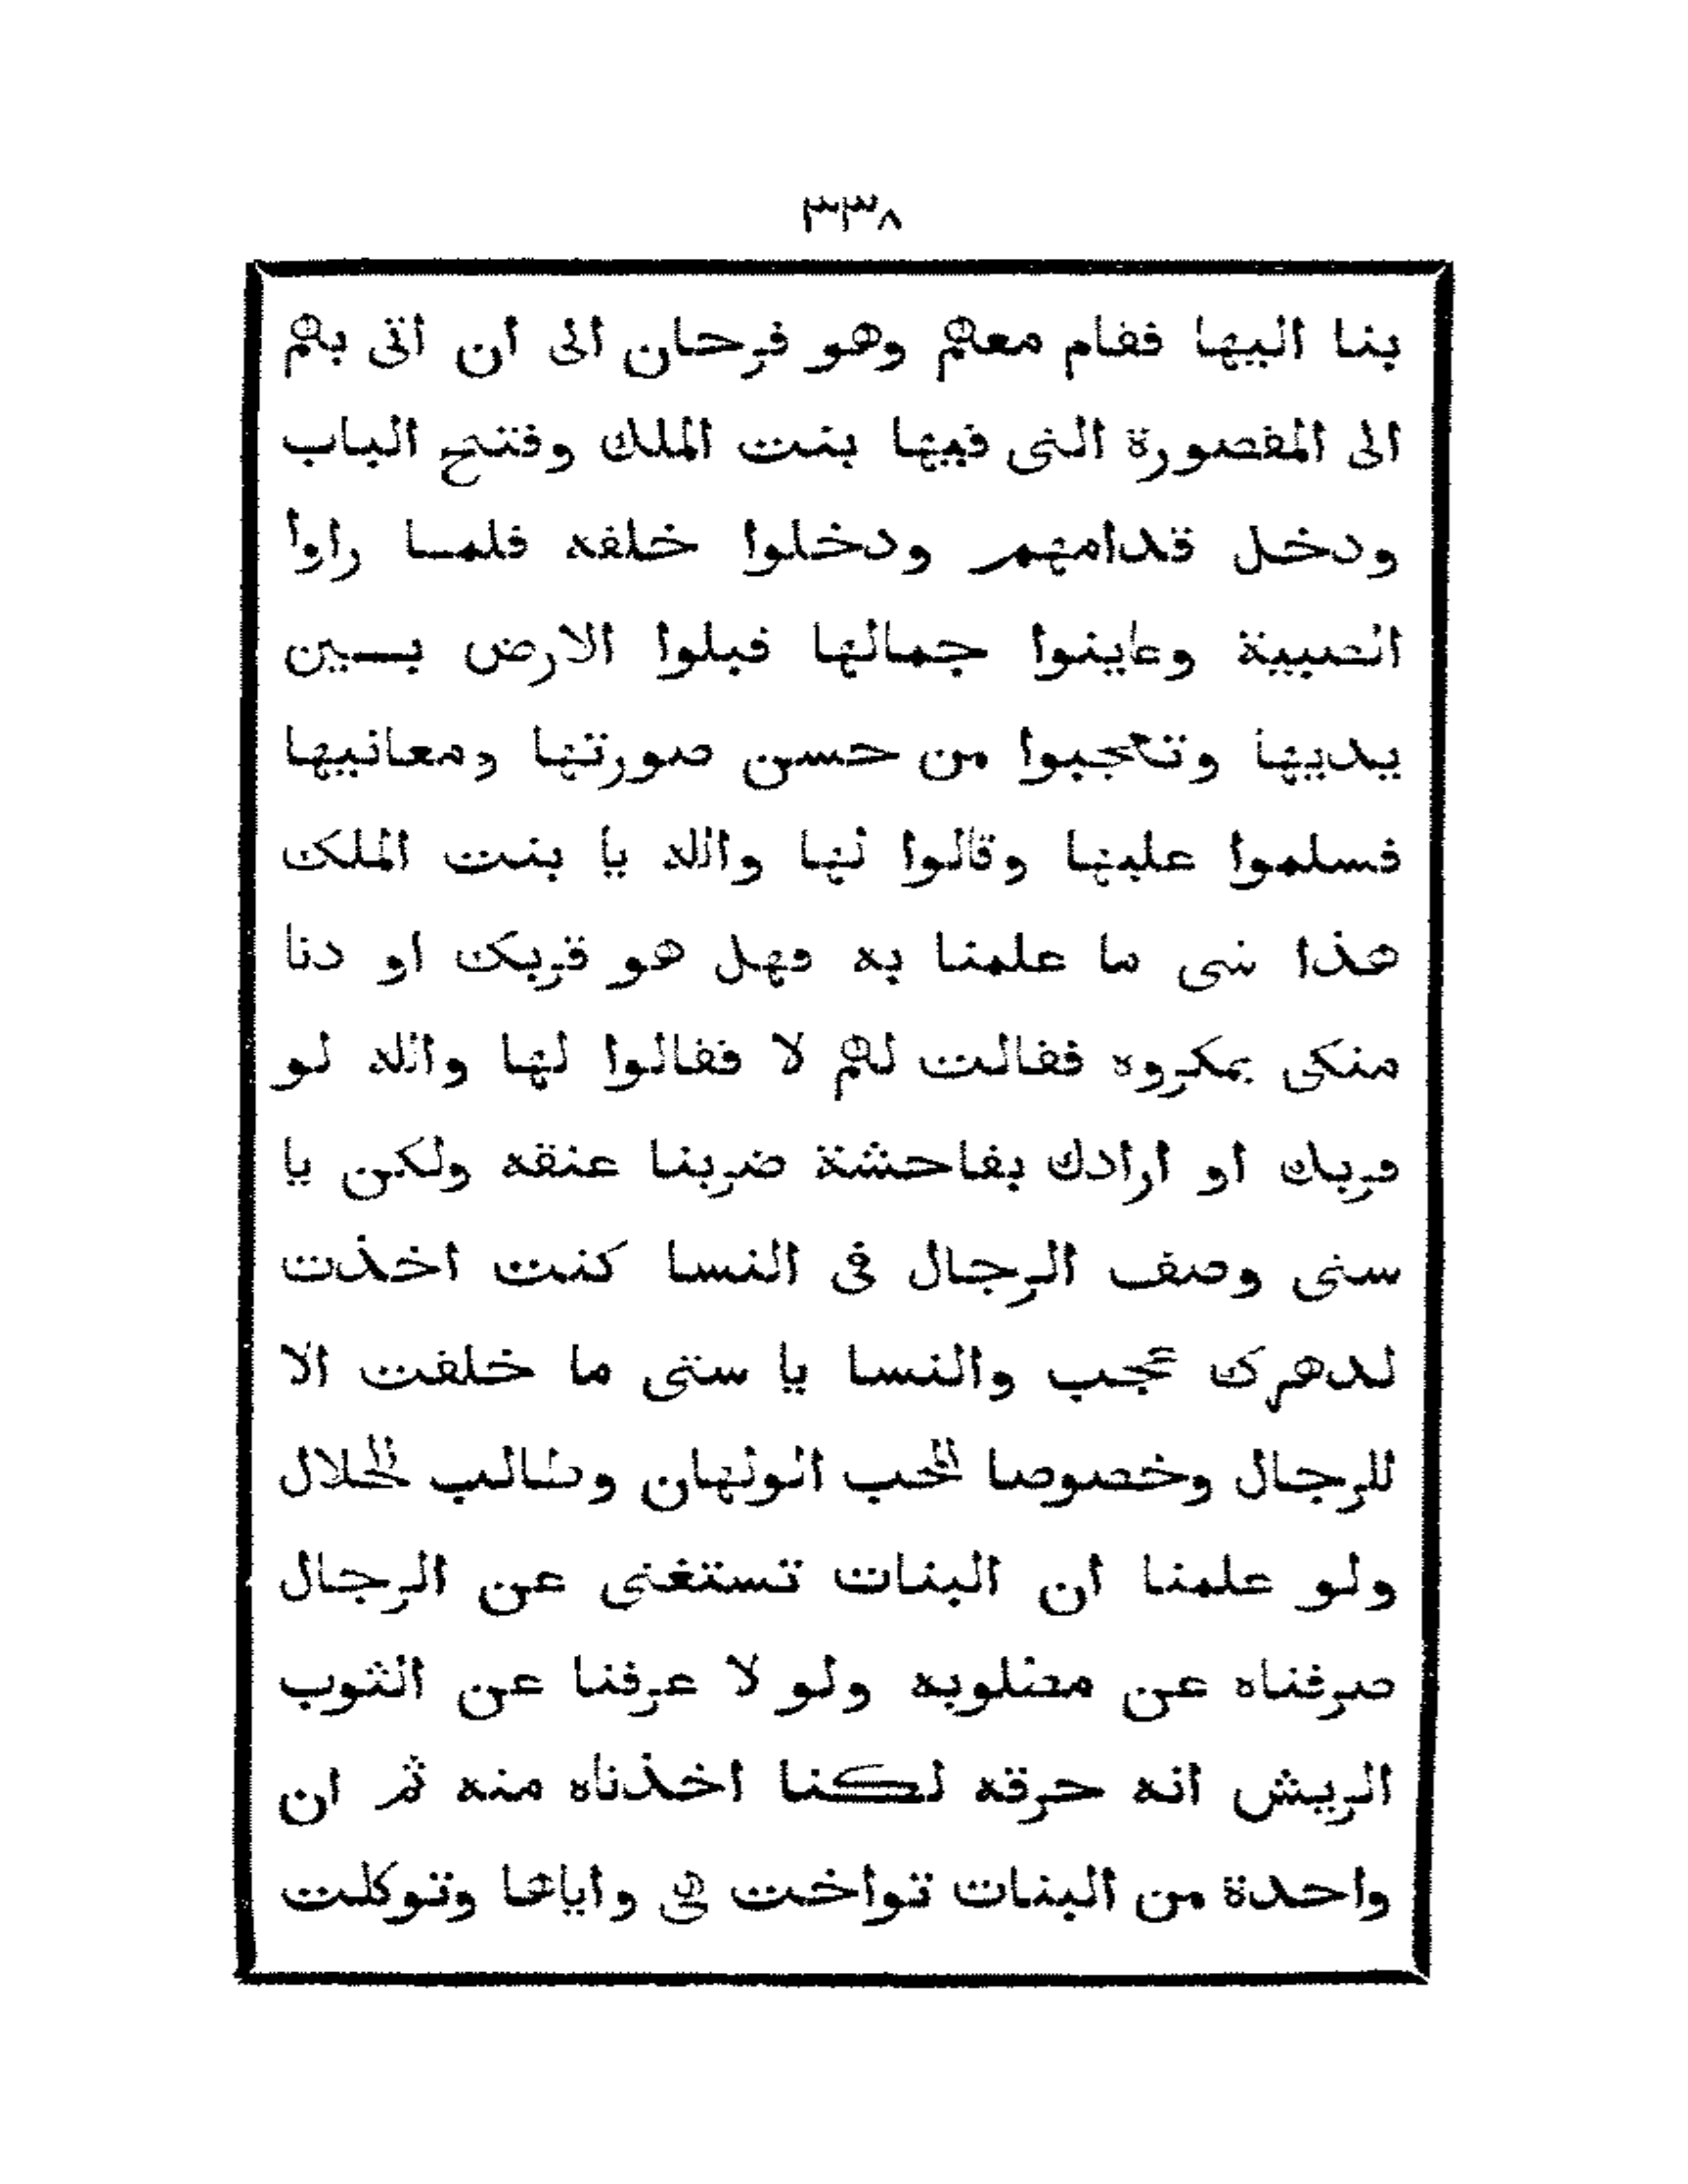 ٣٣٨
بنا اليها فقام معهم وهو فرحان الى ان اتى بهم
الى المقصورة التى فيها بنت الملك وفتح الباب
ودخل قدامهم ودخلوا خلفه فلما راوا
الصبية وعاينوا جمالها قبلوا الارض بين
يديها وتعجبوا من حسن صورتها ومعانيها
فسلموا عليها وقالوا لها والله يا بنت الملك
هذا شى ما علمنا به فهل هو قربك او دنا
منكى بمكروه فقالت لهم لا فقالوا لها والله لو
قربك او ارادك بفاحشة ضربنا عنقه ولكن يا
ستى وصف الرجال فى النسا كنت اخذت
لدهرك عجب والنسا يا ستى ما خلقت الا
للرجال وخصوصا المحب الولهان وطالب الحلال
ولو علمنا ان البنات تستغنى عن الرجال
صرفناه عن مطلوبه ولو لا عرفنا عن الثوب
الريش انه حرقه لكنا اخذناه منه ثم ان
واحدة من البنات تواخت هى واياها وتوكلت